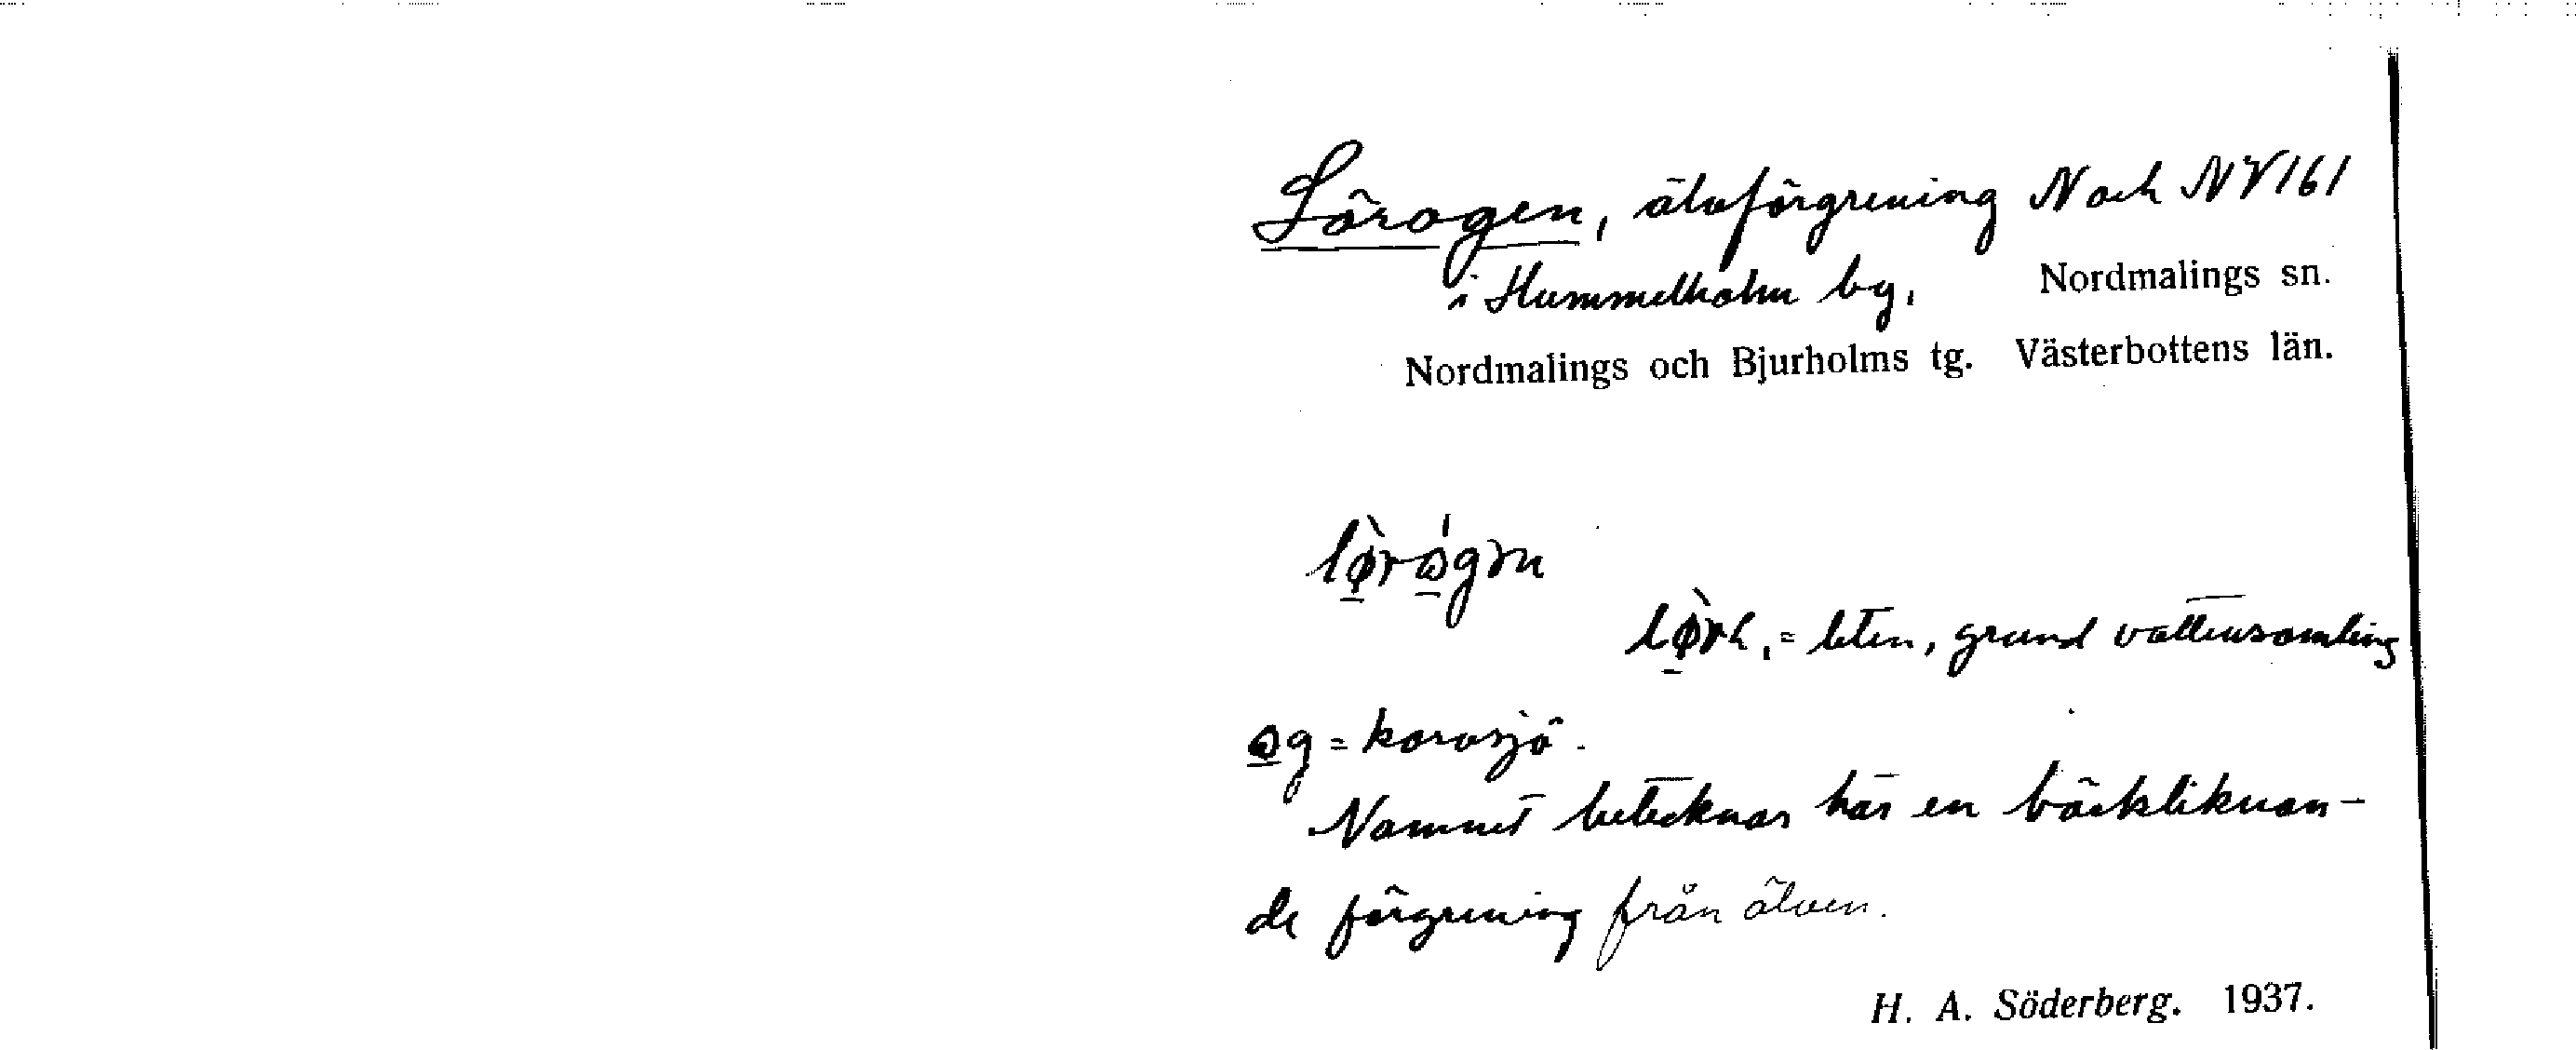 Lörogen, älvförgrening N och NV 161
i Hummelholm by, Nordmalings sn.
Nordmalings och Bjurholms tg. Västerbottens län.
lørogən
lørk, = liten, grund vattensamling
og = korvsjö.
Namnet betecknar här en bäckliknan-
de förgrening från älven.
H. A. Söderberg. 1937.